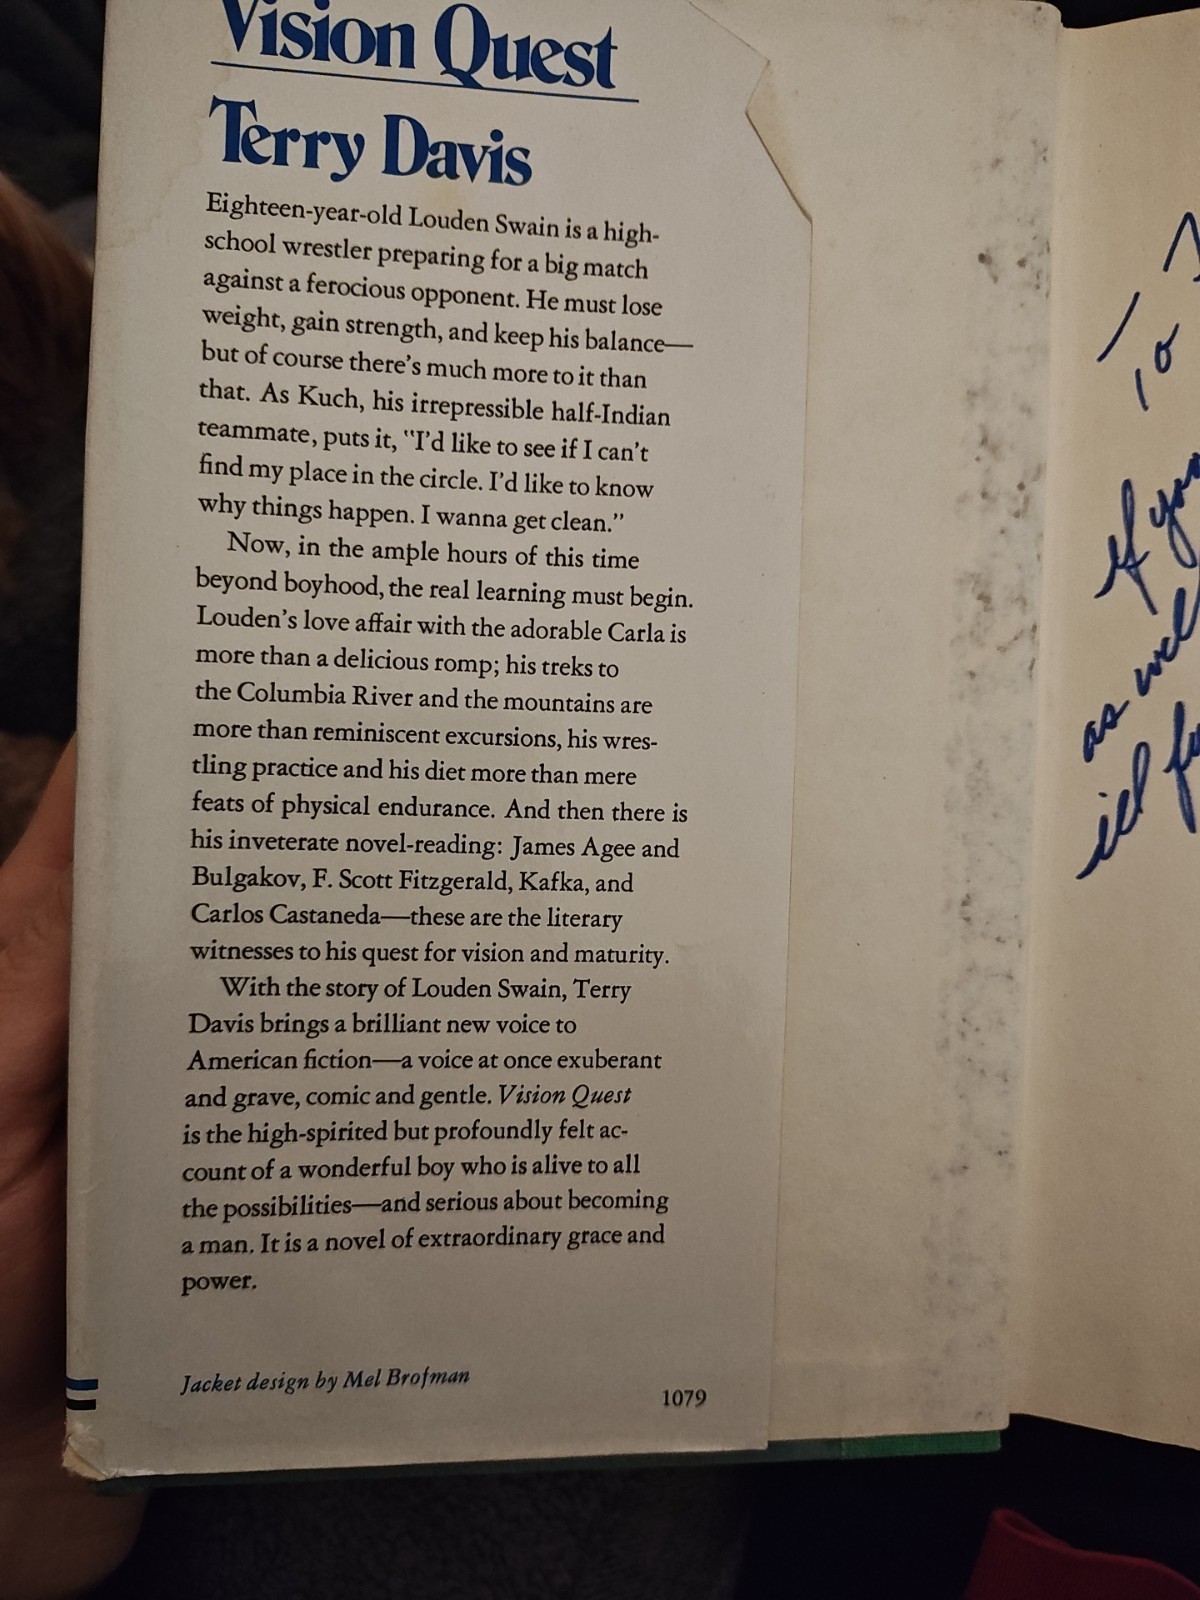 Vision Quest
Terry Davis
Eighteen-year-old Louden Swain is a high-
school wrestler preparing for a big match
against a ferocious opponent. He must lose
weight, gain strength, and keep his balance—
but of course there's much more to it than
that. As Kuch, his irrepressible half-Indian
teammate, puts it, "I'd like to see if I can't
find my place in the circle. I'd like to know
why things happen. I wanna get clean."
Now, in the ample hours of this time
beyond boyhood, the real learning must begin.
Louden's love affair with the adorable Carla is
more than a delicious romp; his treks to
the Columbia River and the mountains are
more than reminiscent excursions, his wres-
tling practice and his diet more than mere
feats of physical endurance. And then there is
his inveterate novel-reading: James Agee and
Bulgakov, F. Scott Fitzgerald, Kafka, and
Carlos Castaneda—these are the literary
witnesses to his quest for vision and maturity.
With the story of Louden Swain, Terry
Davis brings a brilliant new voice to
American fiction—a voice at once exuberant
and grave, comic and gentle. Vision Quest
is the high-spirited but profoundly felt ac-
count of a wonderful boy who is alive to all
the possibilities—and serious about becoming
a man. It is a novel of extraordinary grace and
power.
Jacket design by Mel Brofman
1079
To
If
as